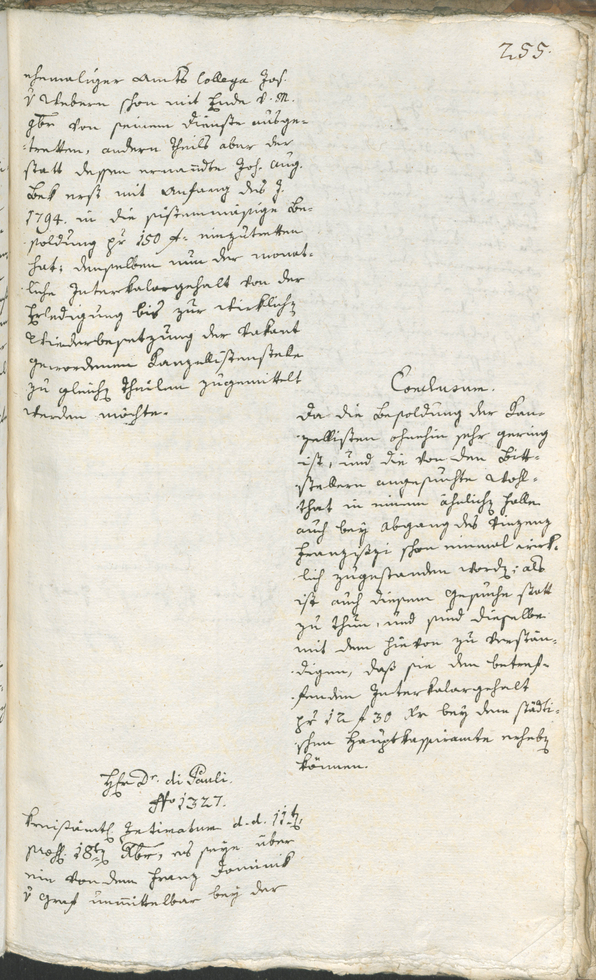 255.
ehemaliger Amts Collega Jos.
v Webern schon mit Ende v. M.
9br von seinem Dienste ausge-
tretten, andern Theils aber der
statt dessen ernannte Joh. Aug.
Bek erst mit Anfang des J.
1794. in die sistemmäsige Be-
soldung pr 150 f. einzutretten
hat; denselben nun der monat-
liche Interkalargehalt von der
Erledigung bis zur wirklichen
Wiederbesetzung der vakant
gewordenen Kanzellistenstele
zu gleichen Theilen zugemittelt
werden möchte.
Conclusum.
Da die Besoldung der Kan-
zellisten ohnehin sehr gering
ist, und die von den Bitt-
stellern angesuchte Wohl-
that in einem ähnlichen Falle
auch bey Abgang des Vinzenz
Franzisci schon einmal wirk-
lich zugestanden worden; als
ist auch diesem Gesuche statt
zu thun, und sind dieselbe
mit dem hievon zu verstän-
digen, daß sie den betref-
fenden Interkalargehalt
pr 12 f 30 Kr bey dem städti-
schen Hauptkassieramte erheben
können.
Hr Dr. di Pauli.
No 1327.
Kreisämtl. Intimatum d. d. 11ten,
18ten Xbr, es seye über
ein von dem Franz Dominik
v Graf unmittelbar bey der